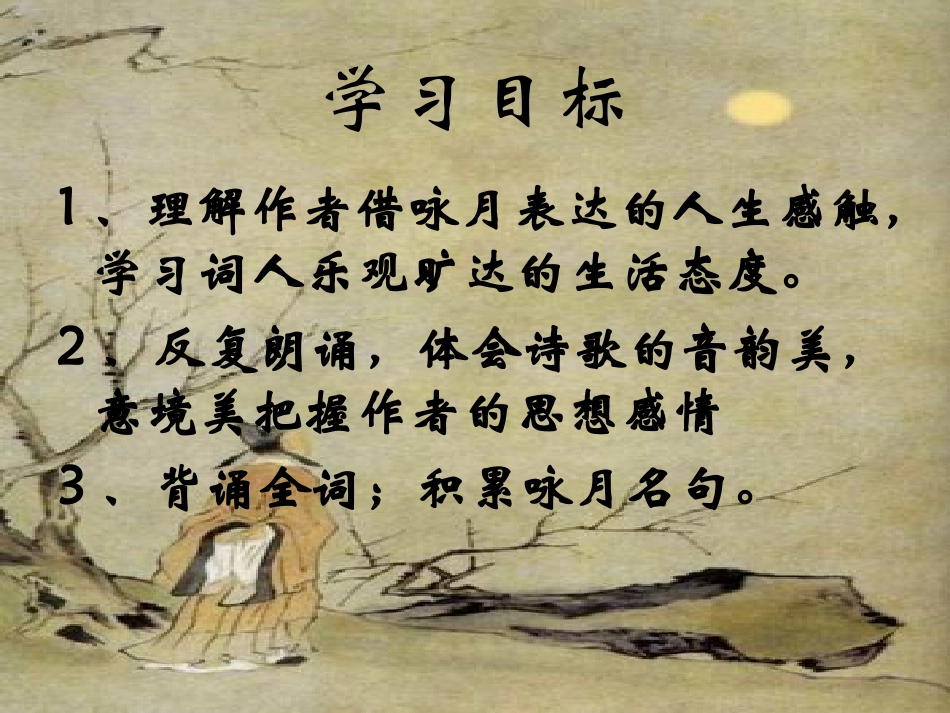 学习目标
1、理解作者借咏月表达的人生感触，
学习词人乐观旷达的生活态度。
2、反复朗诵，体会诗歌的音韵美，
意境美把握作者的思想感情
3、背诵全词；积累咏月名句。